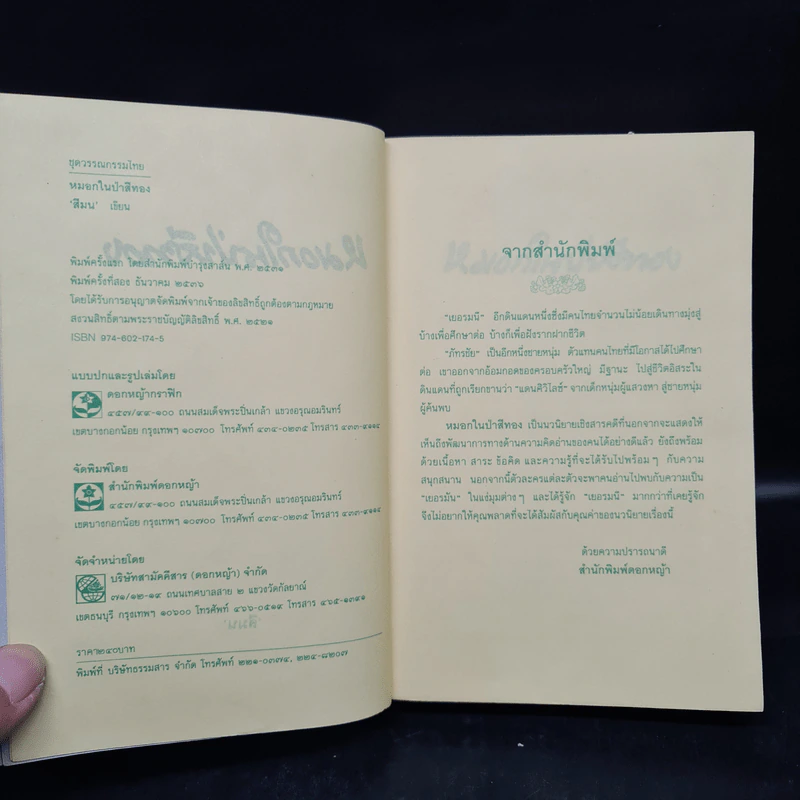 ชุดวรรณกรรมไทย
หมอกในป่าสีทอง
'สีมน' เขียน
พิมพ์ครั้งแรก โดยสำนักพิมพ์บำรุงสาส์น พ.ศ. ๒๕๓๑
พิมพ์ครั้งที่สอง ธันวาคม ๒๕๓๖
โดยได้รับการอนุญาตจัดพิมพ์จากเจ้าของลิขสิทธิ์ถูกต้องตามกฎหมาย
สงวนสิทธิ์ตามพระราชบัญญัติลิขสิทธิ์ พ.ศ. ๒๕๒๑
ISBN 974-602-174-5
แบบปกและรูปเล่มโดย
ดอกหญ้ากราฟิก
๔๕๗/๙๙-๑๐๐ ถนนสมเด็จพระปิ่นเกล้า แขวงอรุณอมรินทร์
เขตบางกอกน้อย กรุงเทพฯ ๑๐๗๐๐ โทรศัพท์ ๔๓๔-๐๒๓๕ โทรสาร ๔๓๓-๕๑๑๘
จัดพิมพ์โดย
สำนักพิมพ์ดอกหญ้า
๔๕๗/๙๙-๑๐๐ ถนนสมเด็จพระปิ่นเกล้า แขวงอรุณอมรินทร์
เขตบางกอกน้อย กรุงเทพฯ ๑๐๗๐๐ โทรศัพท์ ๔๓๔-๐๒๓๕ โทรสาร ๔๓๓-๕๑๑๘
จัดจำหน่ายโดย
บริษัทสามัคคีสาร (ดอกหญ้า) จำกัด
๗๑/๑๒-๑๙ ถนนเทศบาลสาย ๒ แขวงวัดกัลยาณ์
เขตธนบุรี กรุงเทพฯ ๑๐๖๐๐ โทรศัพท์ ๔๖๖-๐๕๑๙ โทรสาร ๔๖๕-๑๓๙๑
ราคา๒๔๐บาท
พิมพ์ที่ บริษัทธรรมสาร จำกัด โทรศัพท์ ๒๒๑-๐๓๗๔, ๒๒๔-๘๒๐๗
จากสำนักพิมพ์
"เยอรมนี" อีกดินแดนหนึ่งซึ่งมีคนไทยจำนวนไม่น้อยเดินทางมุ่งสู่
บ้างเพื่อศึกษาต่อ บ้างก็เพื่อฝังรากฝากชีวิต
"ภัทรชัย" เป็นอีกหนึ่งชายหนุ่ม ตัวแทนคนไทยที่มีโอกาสได้ไปศึกษา
ต่อ เขาออกจากอ้อมกอดของครอบครัวใหญ่ มีฐานะ ไปสู่ชีวิตอิสระใน
ดินแดนที่ถูกเรียกขานว่า "แดนศิวิไลซ์" จากเด็กหนุ่มผู้แสวงหา สู่ชายหนุ่ม
ผู้ค้นพบ
หมอกในป่าสีทอง เป็นนวนิยายเชิงสารคดีที่นอกจากจะแสดงให้
เห็นถึงพัฒนาการทางด้านความคิดอ่านของคนได้อย่างดีแล้ว ยังถึงพร้อม
ด้วยเนื้อหา สาระ ข้อคิด และความรู้ที่จะได้รับไปพร้อมๆ กับความ
สนุกสนาน นอกจากนี้ตัวละครแต่ละตัวจะพาคนอ่านไปพบกับความเป็น
"เยอรมัน" ในแง่มุมต่างๆ และได้รู้จัก "เยอรมนี" มากกว่าที่เคยรู้จัก
จึงไม่อยากให้คุณพลาดที่จะได้สัมผัสกับคุณค่าของนวนิยายเรื่องนี้
ด้วยความปรารถนาดี
สำนักพิมพ์ดอกหญ้า